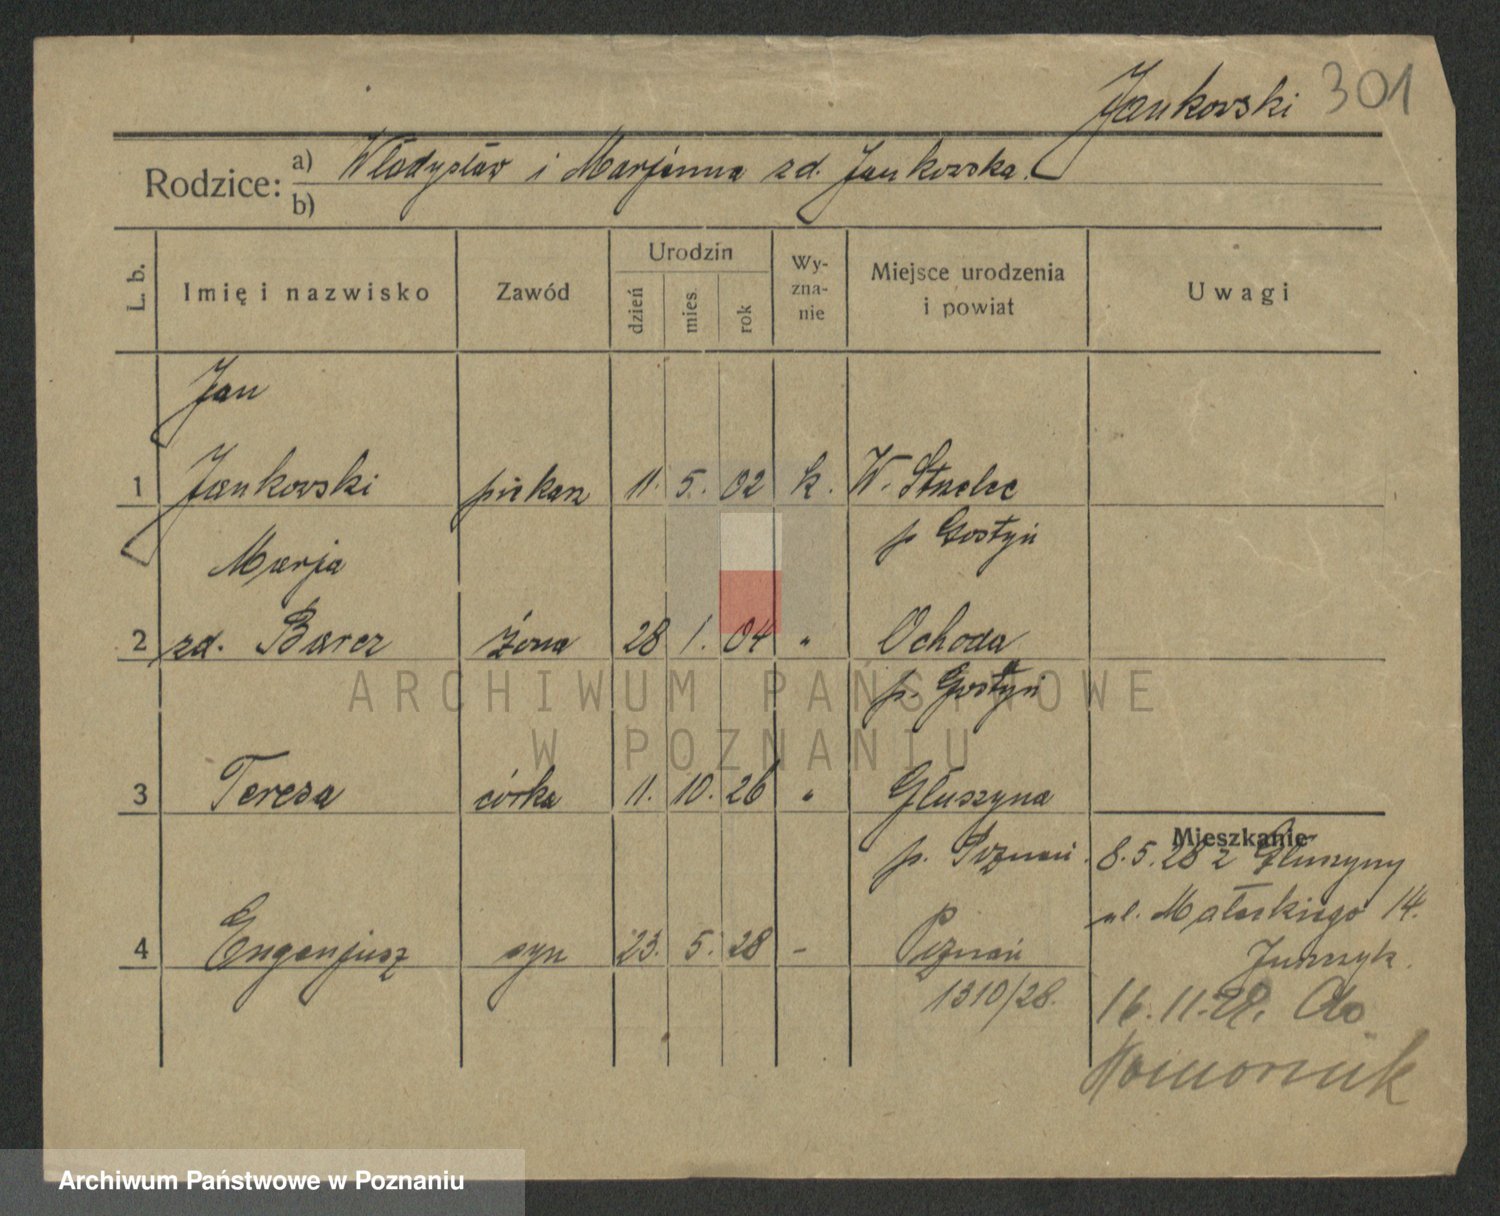 Jankowski 301
Rodzice: a) Władysław i Marjanna zd. Jankowska.
b)
L. b. Imię i nazwisko Zawód Urodzin dzień mies. rok Wy-zna-nie Miejsce urodzenia i powiat Uwagi
Jan
1 Jankowski piekarz 11. 5. 02 k. W. Strzelce
p Gostyń
Marja
2 zd. Barcz żona 28 1. 04 " Ochoda
p. Gostyń
ARCHIWUM PAŃSTWOWE
W POZNANIU
3 Teresa córka 11. 10. 26 " Głuszyna
Mieszkanie
p. Poznań. 8.5.28 z Głuszyny
ul. Małeckiego 14.
4 Eugenjusz syn 23. 5. 28 - Poznań
1310/28.
16.11.28. do
Komornik
Archiwum Państwowe w Poznaniu